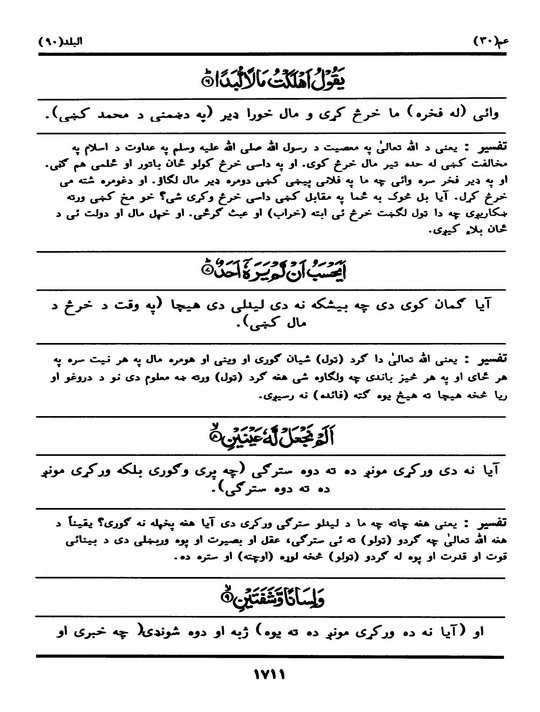 عم(۳۰) البلد(۹۰)
يَقُوۡلُ اَهۡلَكۡتُ مَالًا لُّبَدًا ؕ﴿۶﴾
وائي (له فخره) ما خرڅ کړي و مال خورا ډیر (په دښمنۍ د محمد کښي).
تفسیر : یعني د الله تعالیٰ په معصیت د رسول الله صلی الله علیه وسلم په عداوت د اسلام په
مخالفت کښي له حده تیر مال خرڅ کوي. او په داسي خرڅ کولو ځان باتور او غلمی هم ګڼي.
او په ډیر فخر سره وائي چه ما په فلاني پیښي کښي دومره ډیر مال لګاؤ. او دغومره شته مي
خرڅ کړل. آیا بل څوک به ځما په مقابل کښي داسي خرڅ وکړی شي؟ خو مخ کښي ورته
ښکاریږي چه دا ټول لګښت خرڅ ئي ابته (خراب) او عبث ګرځي. او خپل مال او دولت ئي د
ځان بلاء کیږي.
اَيَحۡسَبُ اَنۡ لَّمۡ يَرَهٗۤ اَحَدٌ ؕ﴿۷﴾
آیا ګمان کوي دی چه بیشکه نه دی لیدلی دی هیچا (په وقت د خرڅ د
مال کښي).
تفسیر : یعني الله تعالیٰ دا ګرد (ټول) شیان ګوري او ویني او هومره مال په هر نیت سره په
هر ځای او په هر څیز باندي چه ولګاوه شي هغه ګرد (ټول) ورته ښه معلوم دي نو د دروغو او
ریا څخه هیچا ته هیڅ یوه ګټه (فائده) نه رسیږي.
اَلَمۡ نَجۡعَلۡ لَّهٗ عَيۡنَيۡنِ ۙ﴿۸﴾
آیا نه دي ورکړي مونږ ده ته دوه سترګي (چه پري وګوري بلکه ورکړي مونږ
ده ته دوه سترګي).
تفسیر : یعني هغه چاته چه ما د لیدلو سترګي ورکړي دي آیا هغه پخپله نه ګوري؟ یقیناً د
هغه الله تعالیٰ چه ګردو (ټولو) ته ئي سترګي، عقل او بصیرت او پوه وربښلي دي د بینائي
قوت او قدرت او پوه له ګردو (ټولو) څخه لوړه (اوچته) او ستره ده.
وَلِسَانًا وَّشَفَتَيۡنِ ۙ﴿۹﴾
او (آیا نه ده ورکړي مونږ ده ته یوه) ژبه او دوه شونډي( چه خبري او
۱۷۱۱